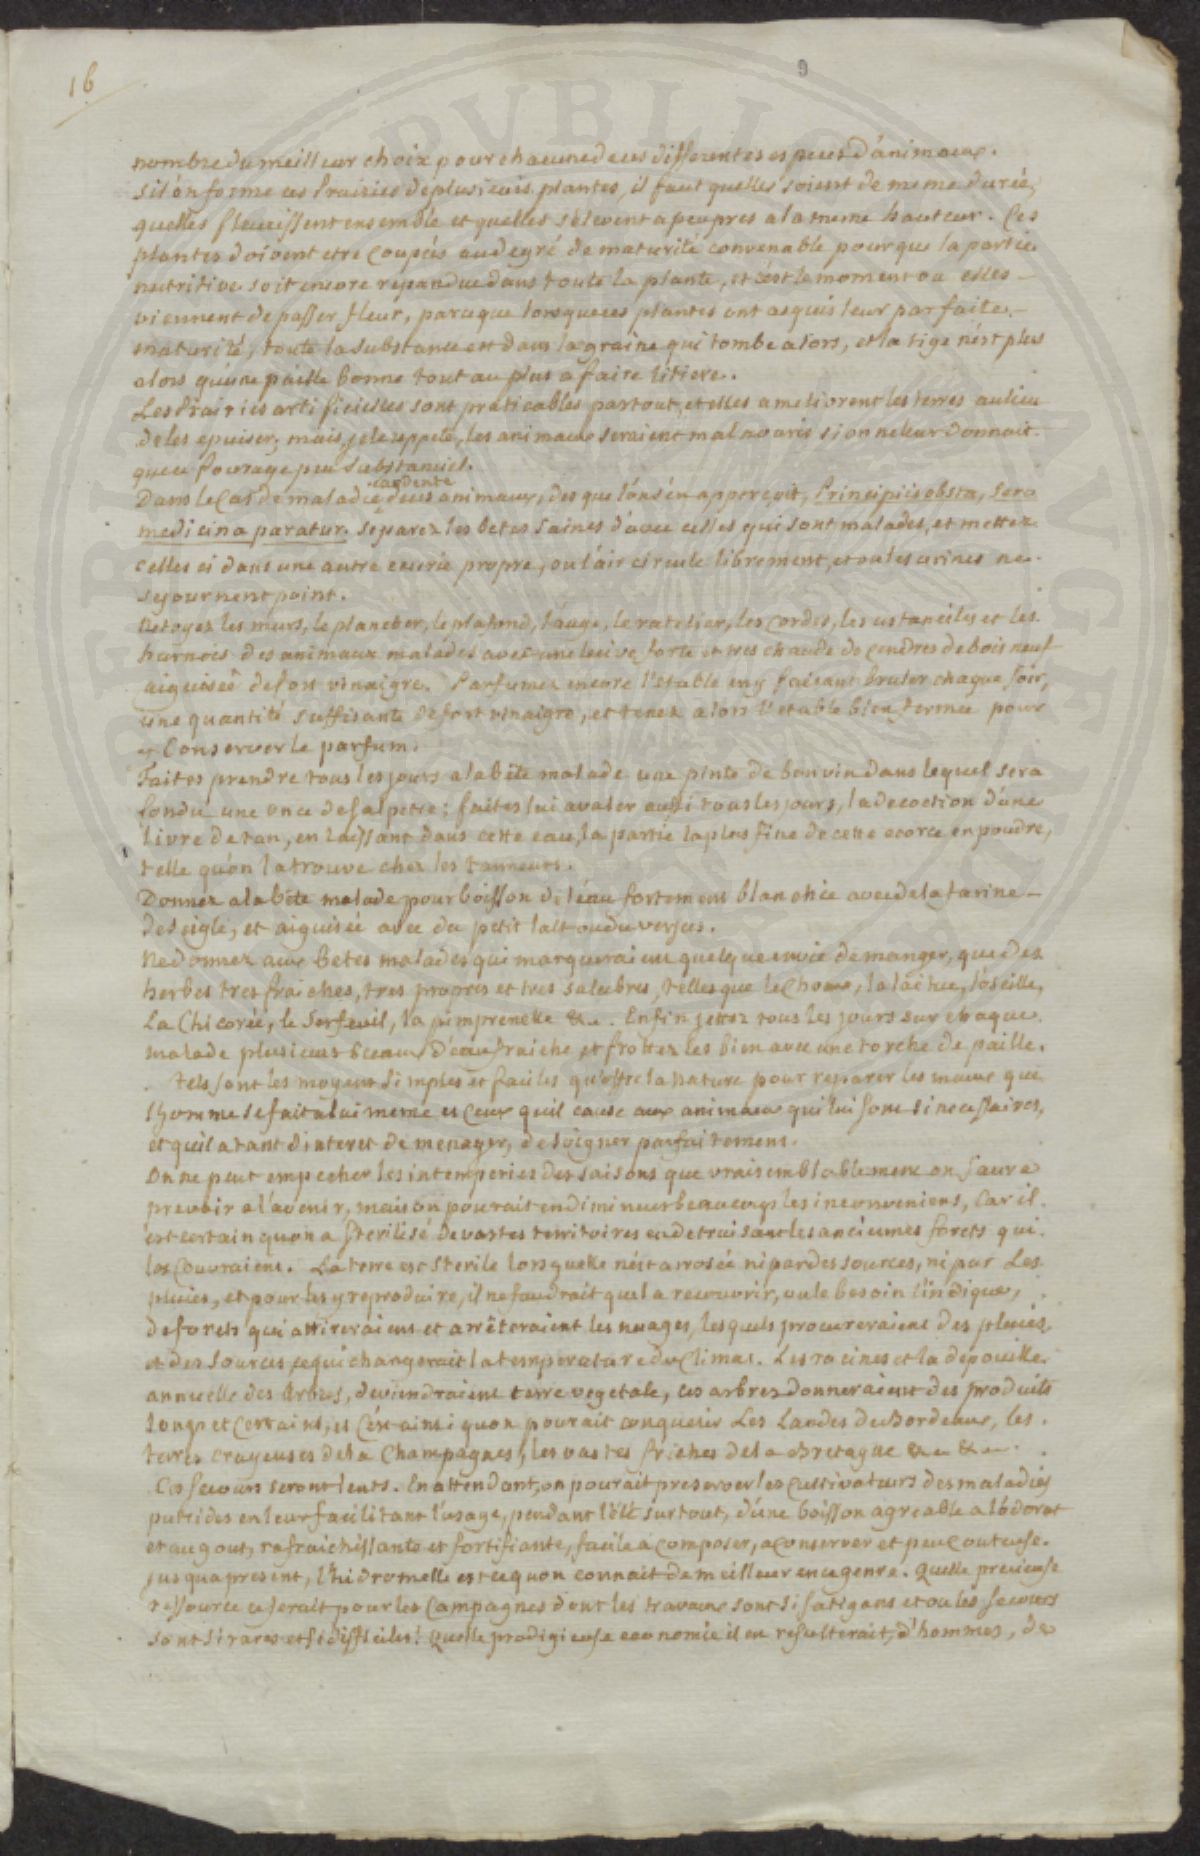 16
9
nombre du meilleur choix pour chacune de ces differentes especes d'animaux.
Si l'on forme ces Prairies de plusieurs plantes, il faut qu'elles soient de meme durée,
quelles fleurissent ensemble et quelles s'elevent a peu pres a la meme hauteur. Ces
plantes doivent etre coupées au degré de maturité convenable pour que la partie
nutritive soit encore repandue dans toute la plante, et c'est le moment ou elles
viennent de passer fleur, parceque lorsque ces plantes ont acquis leur parfaite
maturité, toute la substance est dans la graine qui tombe alors, et la tige n'est plus
alors qu'une paille bonne tout au plus a faire litiere.
Les Prairies artificielles sont praticables partout, et elles ameliorent les terres au lieu
de les epuiser; mais, je le reppete, les animaux seraient mal nouris si on ne leur donnait
que ce fourage peu substanciel.
Dans le Cas de maladie ardente de ces animaux, des que l'on s'en apperçoit, Principiis obsta, sero
medicina paratur. Separez les betes saines d'avec celles qui sont malades, et mettez
celles ci dans une autre ecurie propre, ou l'air circule librement, et ou les urines ne
sejournent point.
Netoyez les murs, le plancher, le plafond, l'auge, le ratelier, les cordes, les ustanciles et les
harnois des animaux malades avec une lecive forte et tres chaude de cendres de bois neuf
aiguisée de fort vinaigre. Parfumez encore l'etable en y faisant bruler chaque soir,
une quantité suffisante de fort vinaigre, et tenez alors l'etable bien fermée pour
en Conserver le parfum.
Faites prendre tous les jours a la bête malade une pinte de bon vin dans lequel sera
fondu une once de salpetre; faites lui avaler aussi tous les jours, la decoction d'une
livre de tan, en laissant dans cette eau, la partie la plus fine de cette ecorce en poudre,
telle qu'on la trouve chez les tanneurs.
Donnez a la bête malade pour boisson de l'eau fortement blanchie avec de la farine
de seigle, et aiguisée avec du petit lait ou du verjus.
Ne donnez aux betes malades qui marqueraient quelque envie de manger, que des
herbes tres fraiches, tres propres et tres salubres, telles que le Choux, la laitue, l'oseille,
La Chicorée, le Serfeuil, la pimprenelle &a. Enfin jettez tous les jours sur chaque
malade plusieurs sceaux d'eau fraiche et frottez les bien avec une torche de paille.
Tels sont les moyens simples et faciles qu'offre la nature pour reparer les maux que
l'homme se fait a lui meme et Ceux qu'il cause aux animaux qui lui sont si necessaires,
et qu'il a tant d'interet de menager, de soigner parfaitement.
On ne peut empecher les intemperies des saisons que vraisemblablement on saura
prevoir a l'avenir, mais on pourait en diminuer beaucoup les inconveniens, Car il
est certain qu'on a sterilisé de vastes territoires en detruisant les anciennes forets qui
les couvraient. La terre est sterile lorsqu'elle n'est arrosée ni par des sources, ni par Les
pluies, et pour les y reproduire, il ne faudrait que la recouvrir, ou le besoin l'indique,
de forets qui attireraient et arrêteraient les nuages, lesquels procureraient des pluies
et des sources ce qui changerait la temperature du Climat. Les racines et la depouille
annuelle des Arbres, deviendraient terre vegetale, ces arbres donneraient des produits
longs et Certains, et C'est ainsi qu'on pourait conquerir Les Landes de Bordeaux, les
terres crayeuses de la Champagne, les vastes friches de la Bretagne &a &a.
Ces secours seront lents. En attendant, on pourait preserver les Cultivateurs des maladies
putrides en leur facilitant l'usage, pendant l'été surtout, d'une boisson agreable a l'odorat
et au gout, rafraichissante et fortifiante, facile a Composer, a Conserver et peu Couteuse.
Jusqu'a present, l'hidromelle est ce qu'on connait de meilleur en ce genre. Quelle precieuse
ressource ce serait pour les Campagnes dont les travaux sont si fatigans et ou les secours
sont si rares et si difficiles! Quelle prodigieuse economie il en resulterait, d'hommes, de